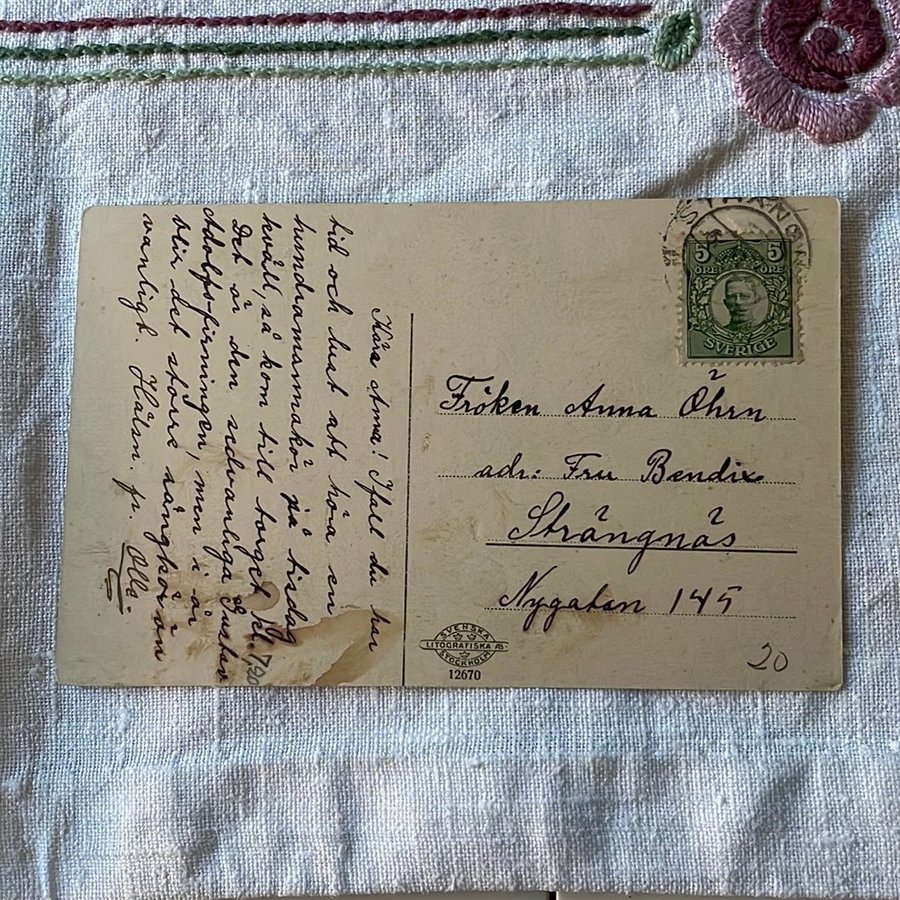 Kära Anna! Ifall du har
tid och lust att höra en
hundramannakör på tisdag
kväll, så kom till torget kl. 7,20
Det är den sedvanliga Gustav
Adolfs-firningen, men i år
blir det större sångkör än
vanligt. Hälsn. fr. Olle.
STRÄNGN
5 5
ÖRE ÖRE
SVERIGE
Fröken Anna Öhrn
adr: Fru Bendix
Strängnäs
Nygatan 145
SVENSKA
LITOGRAFISKA AB
STOCKHOLM
12670
20